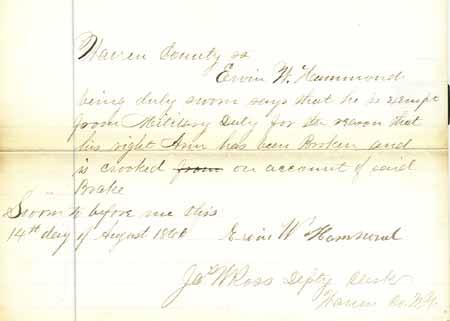 Warren County ss
Ervin W. Hammond
being duly sworn says that he is exempt
from Military Duty for the reason that
his right Arm has been Broken and
is crooked from on account of said
Brake
Sworn to before me this
14th day of August 186
Ervin W Hammond
W Ross Depty Clerk
Warren Co. N.Y.